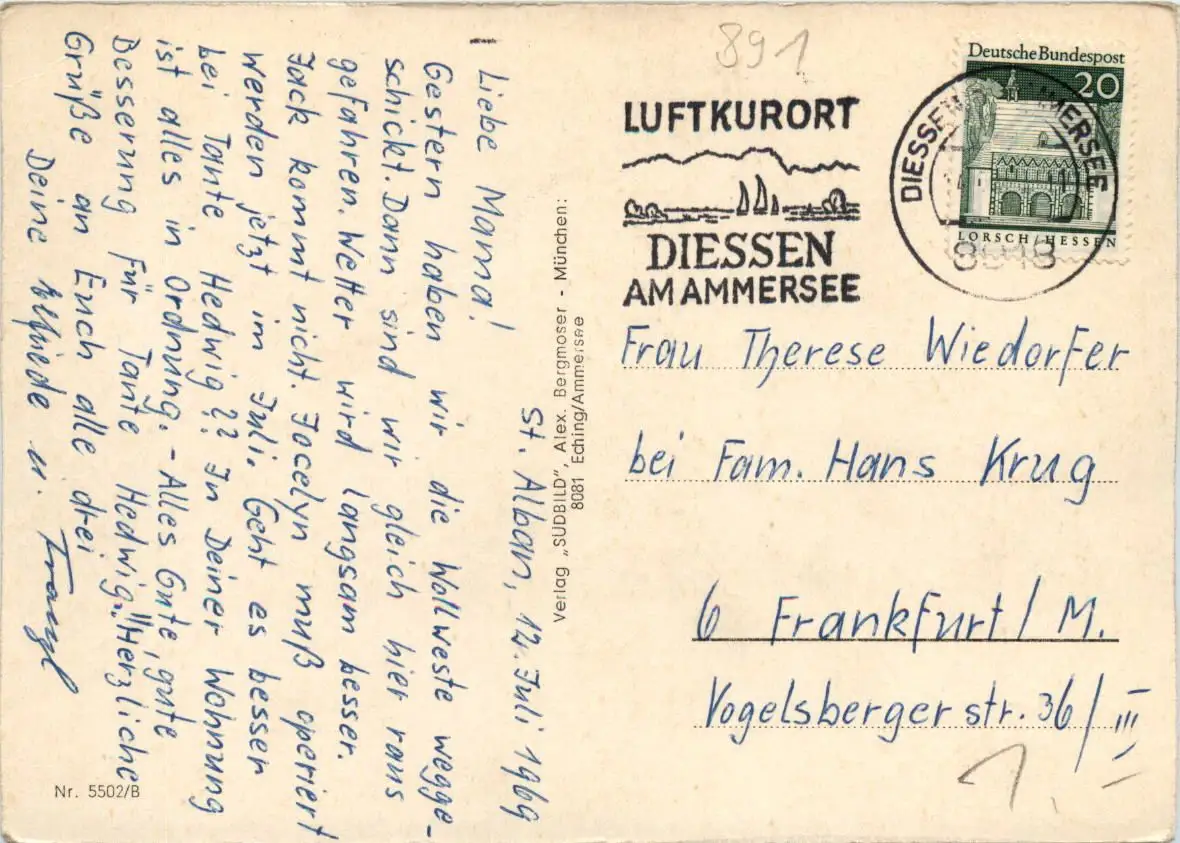 St. Alban, 12. Juli 1969
Liebe Mama!
Gestern haben wir die Wollweste wegge-
schickt. Dann sind wir gleich hier raus
gefahren. Wetter wird langsam besser.
Jack kommt nicht. Jocelyn muß operiert
werden jetzt im Juli. Geht es besser
bei Tante Hedwig?? In Deiner Wohnung
ist alles in Ordnung. - Alles Gute, gute
Besserung für Tante Hedwig!! Herzliche
Grüße an Euch alle drei
Deine u.
Nr. 5502/B
Verlag „SÜDBILD", Alex. Bergmoser - München:
8081 Eching/Ammersee
891
LUFTKURORT
DIESSEN
AM AMMERSEE
Deutsche Bundespost
20
LORSCH/HESSEN
DIESSEN AMMERSEE
8918
Frau Therese Wiedorfer
bei Fam. Hans Krug
6 Frankfurt/M.
Vogelsbergerstr. 36/III
1.-